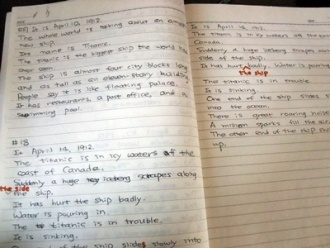 It is April 10, 1912.
The whole world is talking about an amazing
new ship.
Its name is Titanic.
The titanic is the bigger ship the world has
ever seen.
The ship is almost four city blocks long
and as tall as an eleven story building.
People say it is like floating palace.
It has restaurants, a post office, and a
swimming pool.
#18
Is April 14, 1912.
The titanic is in icy waters of the
coast of Canada.
Suddenly a huge iceberg scrapes along
the side
It has hurt the ship badly.
Water is pouring in.
The titanic is in trouble.
It is sinking.
of the ship slides slowly into
It is April 14, 1912.
The titanic is in icy waters off the coast
Canada.
Suddenly a huge iceberg scrapes along
side of the ship.
It has hurt badly. Water is pouring
the ship
The titanic is in trouble.
It is sinking.
One end of the ship slides
into the ocean.
There is great roaring noise
A million
The other end of the ship
up.